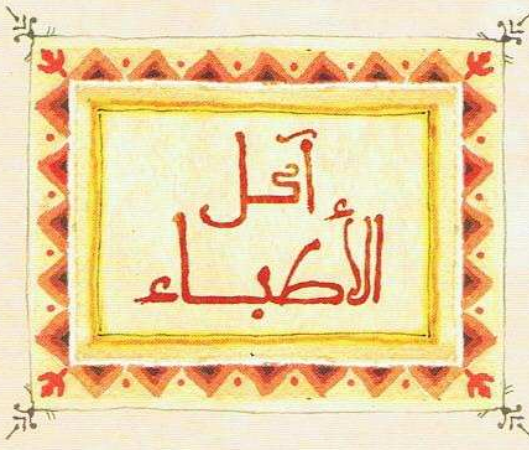 أكل
الأطباء